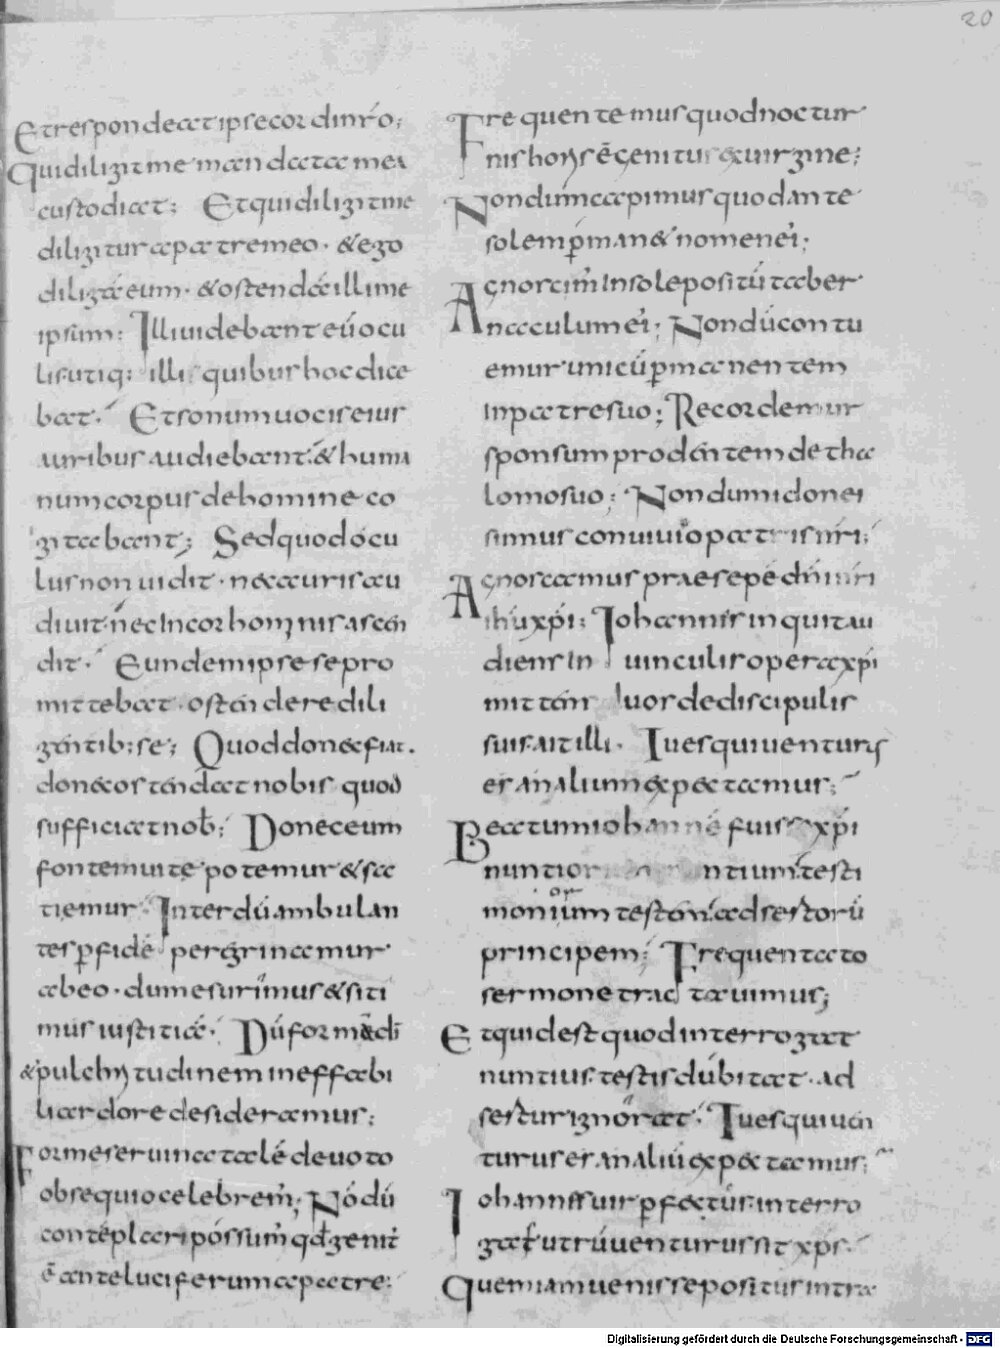 20
Et respondeat ipse cordi nr̄o;
Qui diligit me mandata mea
custodiat; Et qui diligit me
diligitur a patre meo. & ego
diligā eum. & ostendā illi me
ipsum; Illi videbant eū ocu
lis. utiq; illi quibus hoc dice
bat. Et sonum vocis eius
auribus audiebant. & huma
num corpus de homine co
gitabant; Sed quod ocu
lus non vidit. nec auris au
divit. nec in cor hominis ascen
dit. Eundem ipse se pro
mittebat. ostendere dili
gentib; se; Quod donec fiat.
donec ostendat nobis quod
sufficiat nob̄; Donec eum
fontem vitę potemur & sa
tiemur. Interdū ambulan
tes ꝑ fidē peregrinamur
ab eo. dum esurimus & siti
mus iustitiā. Dū formā dī
& pulchritudinem ineffabi
li ardore desideramus;
Forme servi natalē devoto
obsequio celebrem; Nōdū
contēplari possum qđ genit
ē ante luciferum a patre;
Frequentemus quod noctur
nis horis ē genitus ex virgine;
Nondum capimus quod ante
solem ꝑman& nomen ei;
Agnorcim in sole positū taber
naculum ei; Nondū contu
emur unicū ꝑmanentem
in patre suo; Recordemur
sponsum prodentem de tha
lomo suo; Nondum idonei
sumus convivio patris nr̄i;
Agnorcamus praesepe dn̄i nr̄i
ihū xp̄i; Iohannis inquit au
diens in vinculis opera xp̄i
mitten duos de discipulis
suis. ait illi. Tu es qui venturus
es. an alium expectamus;
Beatum iohannē fuisse xp̄i
nuntior ntium testi
monium testem adsestorū
principem; Frequentato
sermone tractavimus;
Et quid est quod interrogat
nuntius. testis dubitat. ad
sestur ignorat. Tu es qui ven
turus es. an aliū expectamus;
Iohannes vir ꝑfectus. interro
gat utrū venturus sit xp̄s.
Quem iam venisse positus intra
Digitalisierung gefördert durch die Deutsche Forschungsgemeinschaft - DFG